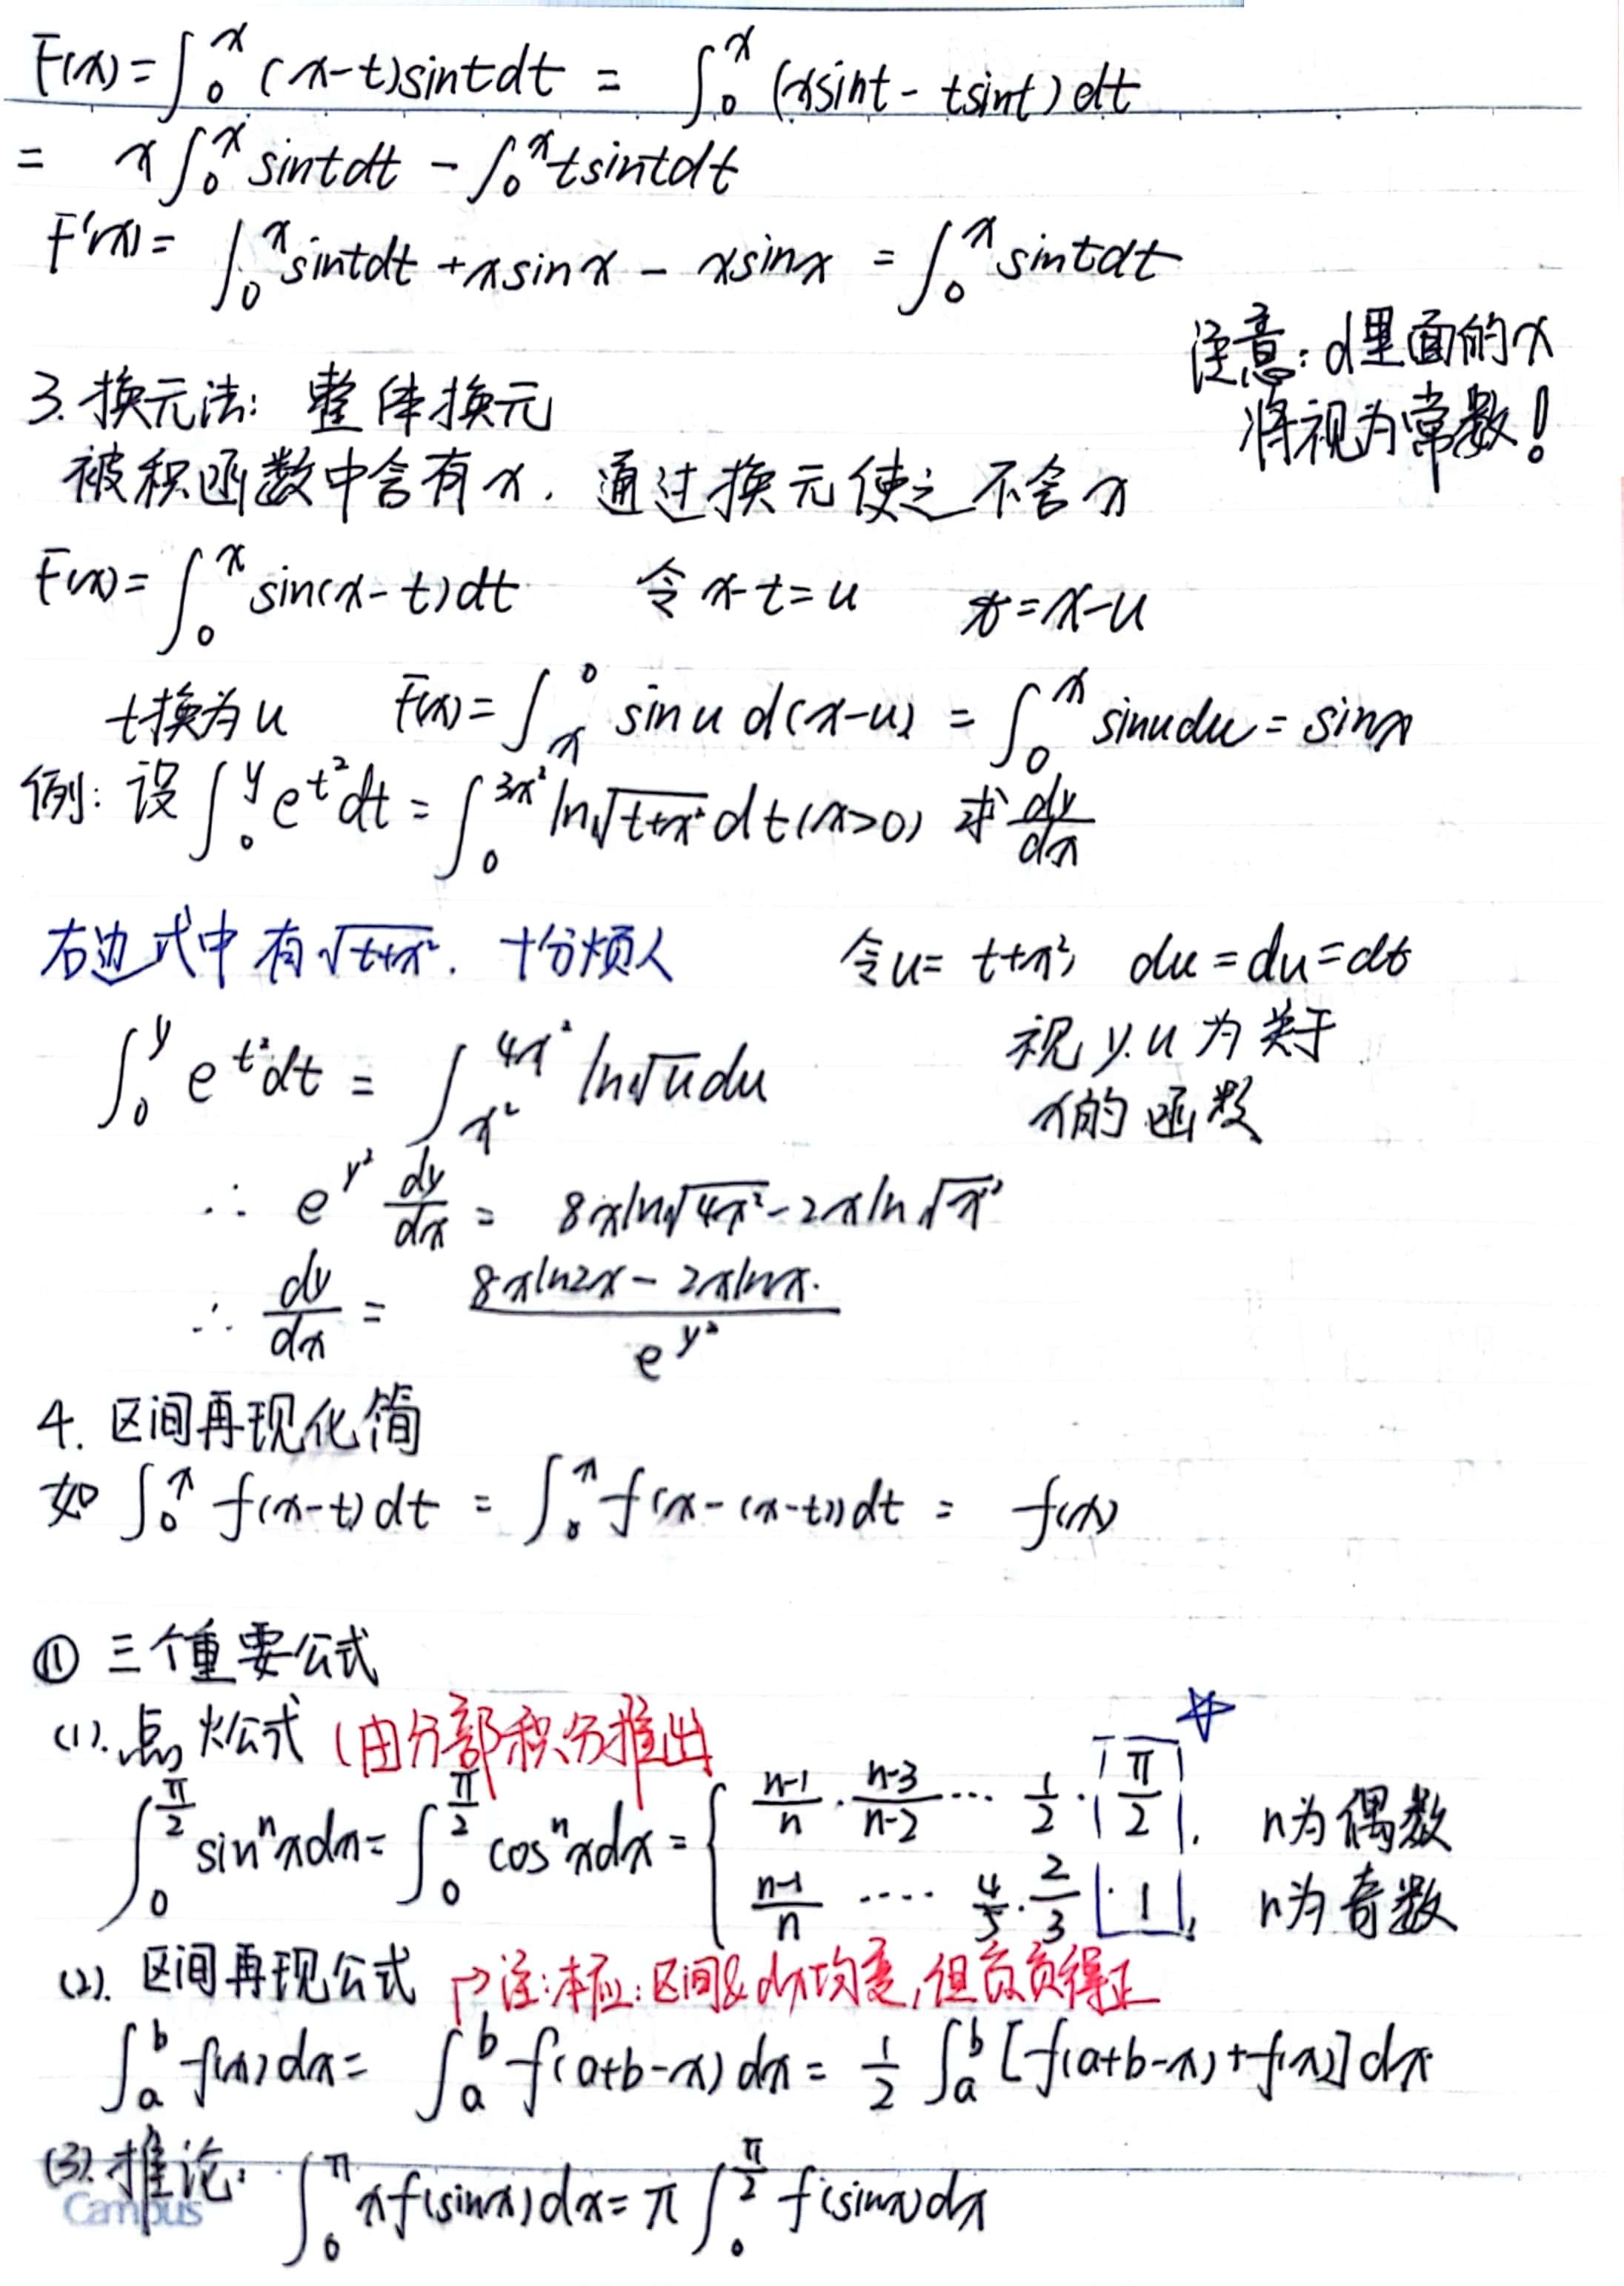 F(x)=∫₀ˣ(x-t)sintdt = ∫₀ˣ(xsint-tsint)dt
= x∫₀ˣsintdt-∫₀ˣtsintdt
F'(x)= ∫₀ˣsintdt+xsinx-xsinx =∫₀ˣsintdt
注意:d里面的x
将视为常数!
3.换元法: 整体换元
被积函数中含有x. 通过换元使之不含x
F(x)=∫₀ˣsin(x-t)dt 令x-t=u t=x-u
t换为u F(x)=∫ₓ⁰sinu d(x-u) =∫₀ˣsinudu=sinx
例: 设∫₀ʸe^{t²}dt=∫₀^{3x²}ln√(t+x²)dt(x>0) 求dy/dx
右边式中有√(t+x²). 十分烦人 令u= t+x², du=du=dt
∫₀ʸe^{t²}dt = ∫_{x²}^{4x²}ln√u du 视y.u为关于
x的函数
∴ e^{y²} dy/dx = 8xln√(4x²)-2xln√(x²)
∴ dy/dx = (8xln2x-2xlnx.)/e^{y²}
4. 区间再现化简
如∫₀ˣf(x-t)dt = ∫₀ˣf(x-(x-t))dt = f(x)
⑪ 三个重要公式
(1).点火公式 (由分部积分推出
∫₀^{π/2}sinⁿxdx=∫₀^{π/2}cosⁿxdx={ (n-1)/n·(n-3)/(n-2)··· 1/2·π/2, n为偶数
(n-1)/n ···· 4/5·2/3·1, n为奇数
(2). 区间再现公式 →注:本应:区间&dx均变,但负负得正
∫ₐᵇf(x)dx= ∫ₐᵇf(a+b-x)dx= 1/2 ∫ₐᵇ[f(a+b-x)+f(x)]dx
(3).推论: ∫₀^π xf(sinx)dx=π∫₀^{π/2}f(sinx)dx
Campus